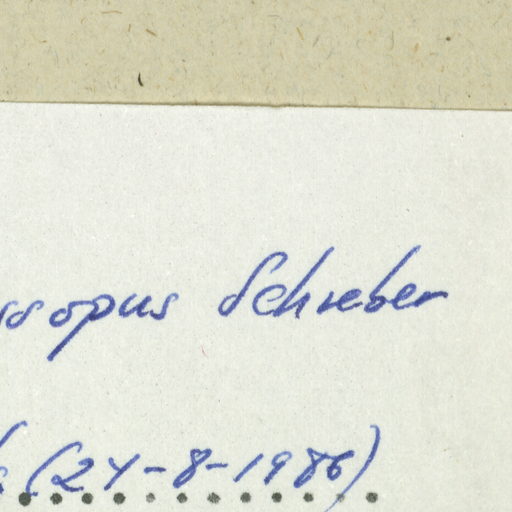 ssopus Schreber
(24-8-1986)